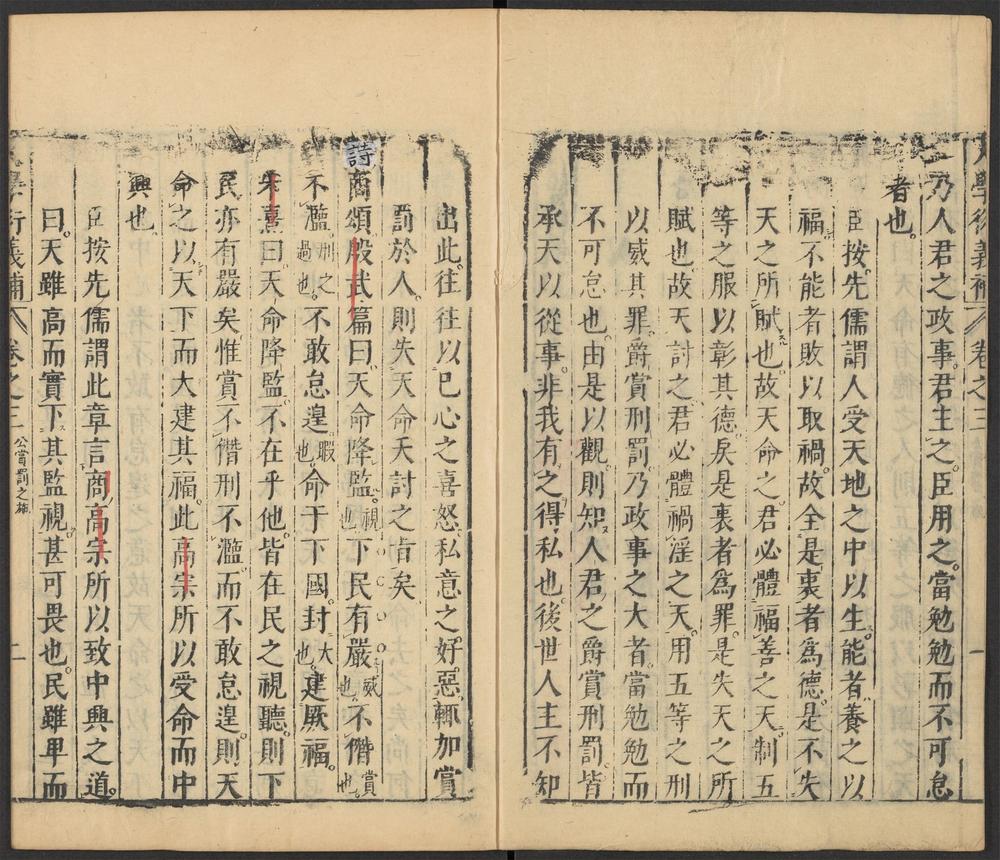 大學衍義補 卷之三 一
乃人君之政事君主之臣用之當勉勉而不可怠
者也
臣按先儒謂人受天地之中以生能者養之以
福不能者敗以取禍故全是衷者爲德是不失
天之所賦也故天命之君必體福善之天制五
等之服以彰其德戾是衷者爲罪是失天之所
賦也故天討之君必體禍淫之天用五等之刑
以威其罪爵賞刑罰乃政事之大者當勉勉而
不可怠也由是以觀則知人君之爵賞刑罰皆
承天以從事非我有之得私也後世人主不知
出此往往以已心之喜怒私意之好惡輒加賞
罰於人則失天命天討之旨矣
詩商頌殷武篇曰天命降監視也下民有嚴威也不僭賞也
不濫刑之過也不敢怠遑暇也命于下國封大也建厥福
朱熹曰天命降監不在乎他皆在民之視聽則下
民亦有嚴矣惟賞不僭刑不濫而不敢怠遑則天
命之以天下而大建其福此高宗所以受命而中
興也
臣按先儒謂此章言商高宗所以致中興之道
曰天雖高而實下其監視甚可畏也民雖卑而
大學衍義補 卷之三 公賞罰之施 二